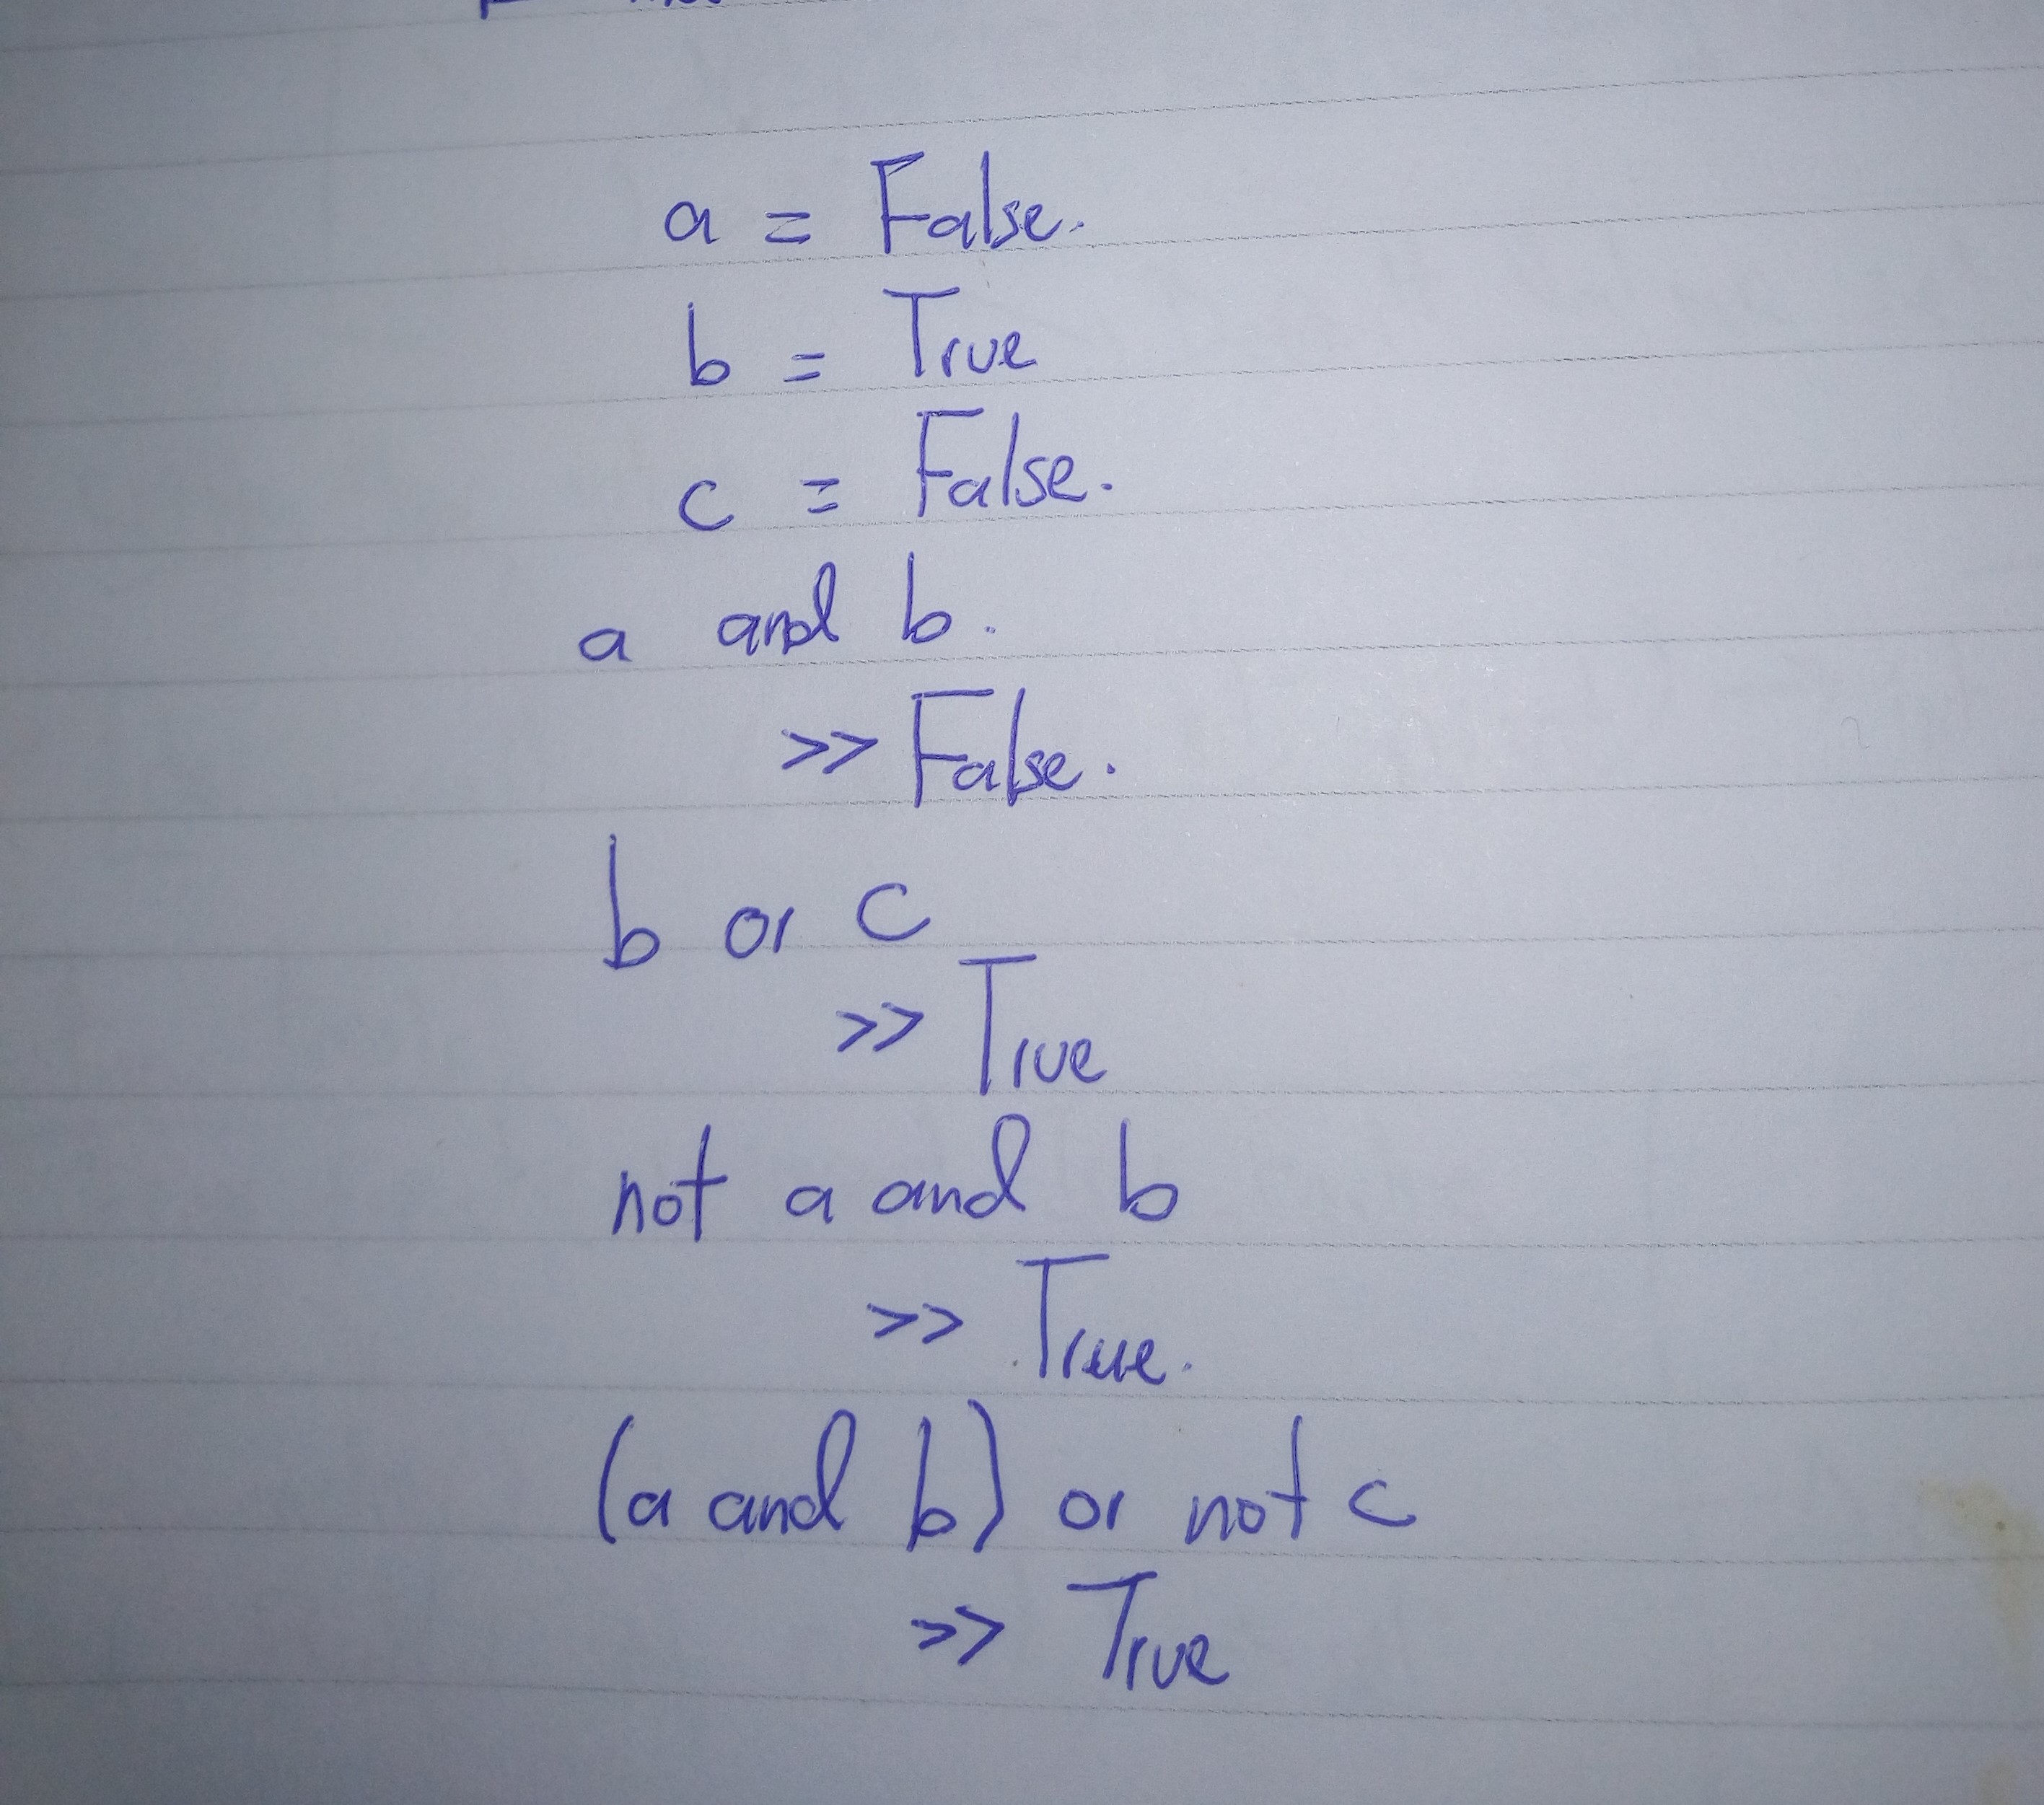 a = False.
b = True
c = False.
a and b.
>> False.
b or c
>> True
not a and b
>> True.
(a and b) or not c
>> True